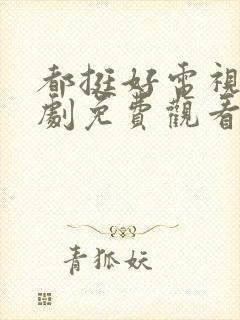 都挺好電視
劇免費觀看
青狐妖